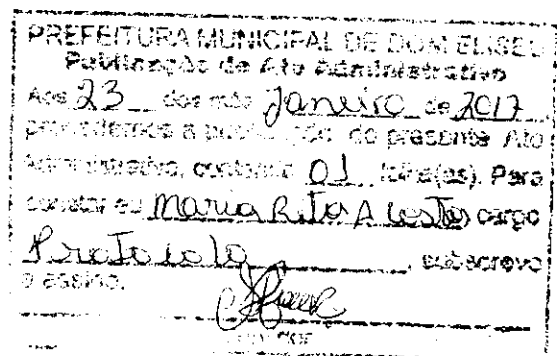 PREFEITURA MUNICIPAL DE DOM ELISEU
Publicação de Ato Administrativo
Aos 23 dos mês Janeiro de 2017
procedemos a publicação do presente Ato
Administrativo, contendo 01 folha(as). Para
constar eu Maria Rita A Costa, cargo
Protocolo, subscrevo
e assino.